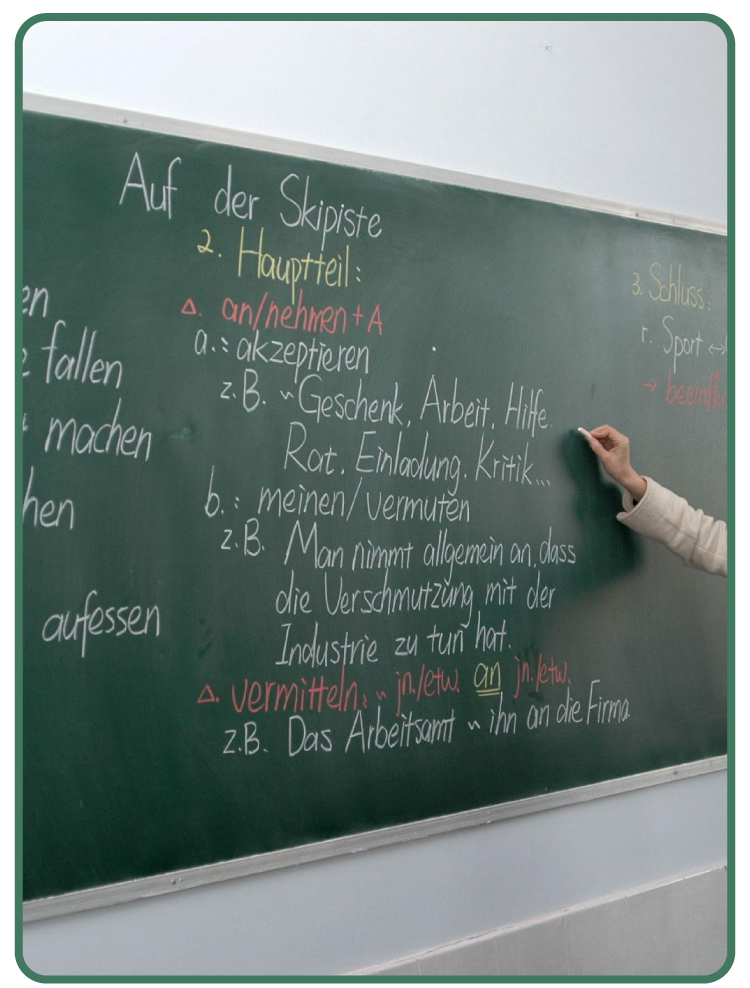 Auf der Skipiste
fallen
machen
aufessen
2. Hauptteil:
△. an/nehmen + A
a.: akzeptieren
z.B. ~ Geschenk, Arbeit, Hilfe.
Rat, Einladung, Kritik...
b.: meinen/vermuten
z.B. Man nimmt allgemein an, dass
die Verschmutzung mit der
Industrie zu tun hat.
△. vermitteln: ~ jn./etw. an jn./etw.
z.B. Das Arbeitsamt ~ ihn an die Firma
3. Schluss:
r. Sport ↔
→